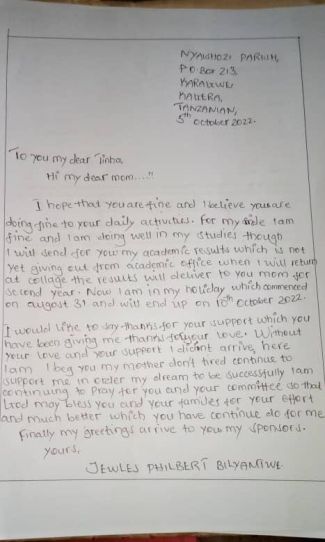 NYAISHOZI PARISH,
P.O Box 213
KARAGWE
KAGERA,
TANZANIAN,
5th October 2022.
To you my dear Tinha,
Hi my dear mom....!!
I hope that you are fine and I believe you are
doing fine to your daily activities. For my side I am
fine and I am doing well in my studies though
I will send for you my academic results which is not
yet giving out from academic office when I will return
at collage the results will deliver to you mom for
second year. Now I am in my holiday which commenced
on august 31 and will end up on 16th October 2022.
I would like to say thanks for your support which you
have been giving me thanks for your love. Without
your love and your support I didn't arrive here
I am I beg you my mother don't tired continue to
support me in order my dream to be successfully I am
continuing to Pray for you and your committee so that
God may bless you and your families for your effort
and much better which you have continue do for me
Finally my greetings arrive to you my sponsors.
yours,
JEWLES PHILBERT